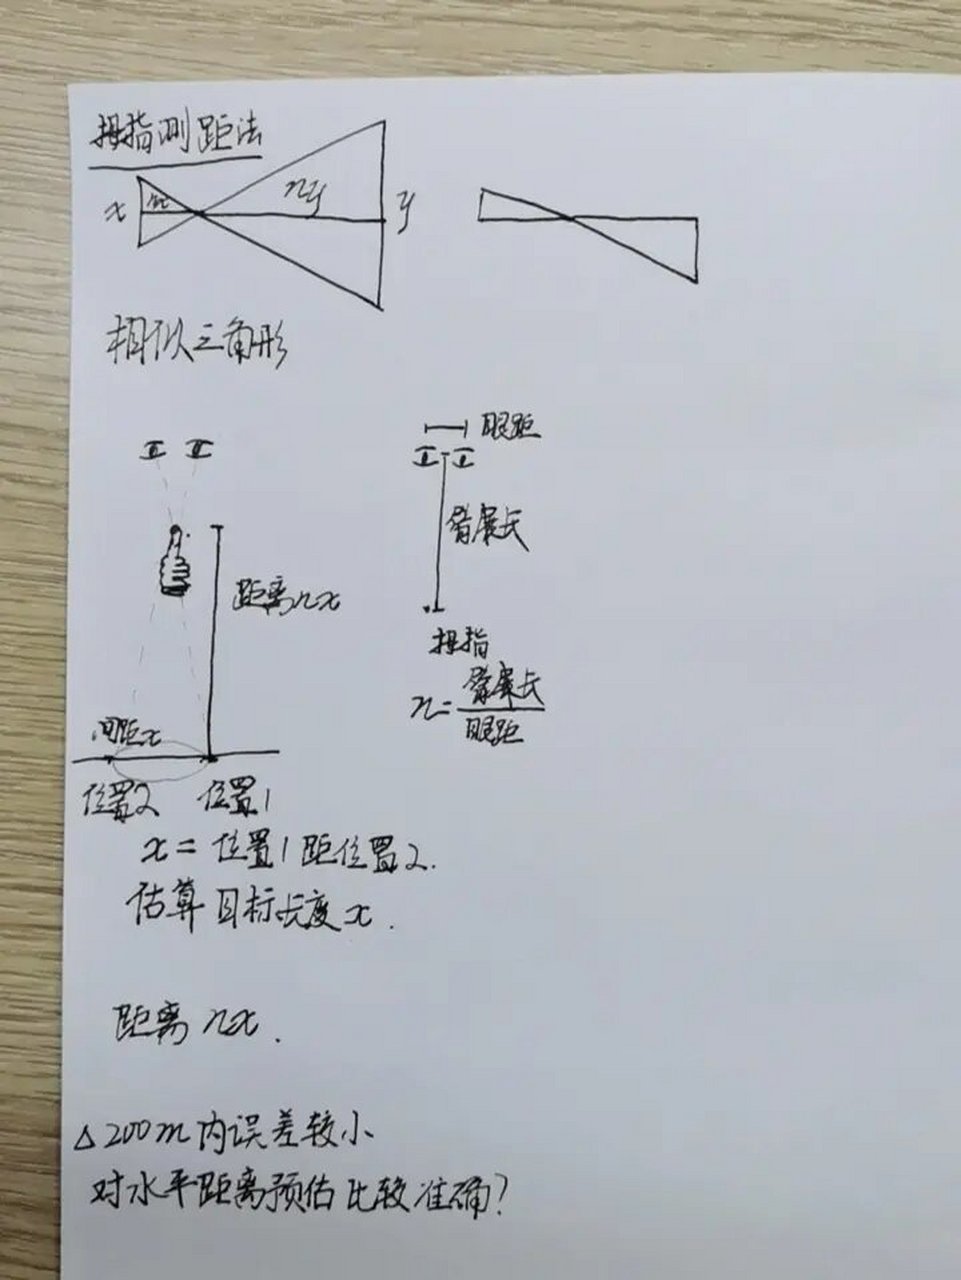 拇指测距法
x nx ny y
相似三角形
眼距
臂展长
距离nx
拇指
n=臂展长/眼距
间距x
位置2 位置1
x=位置1距位置2.
估算目标长度x.
距离nx.
△200m内误差较小
对水平距离预估比较准确?